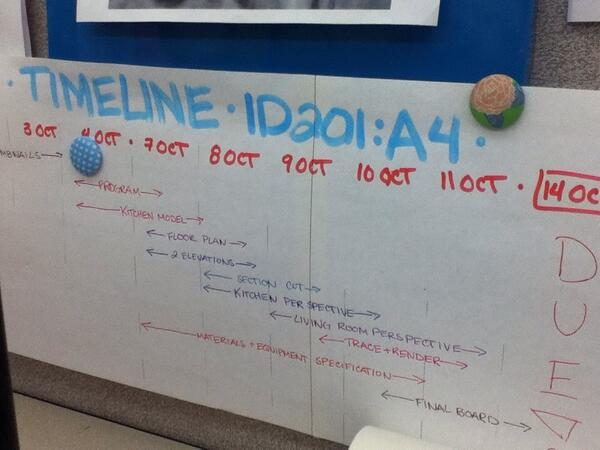 • TIMELINE • ID201:A4 •
3 OCT 4 OCT • 7 OCT 8 OCT 9 OCT 10 OCT 11 OCT • 14 OC
MBNAILS
PROGRAM
KITCHEN MODEL
FLOOR PLAN
2 ELEVATIONS
SECTION CUT
KITCHEN PERSPECTIVE
LIVING ROOM PERSPECTIVE
TRACE + RENDER
MATERIALS + EQUIPMENT SPECIFICATION
FINAL BOARD
D
U
E